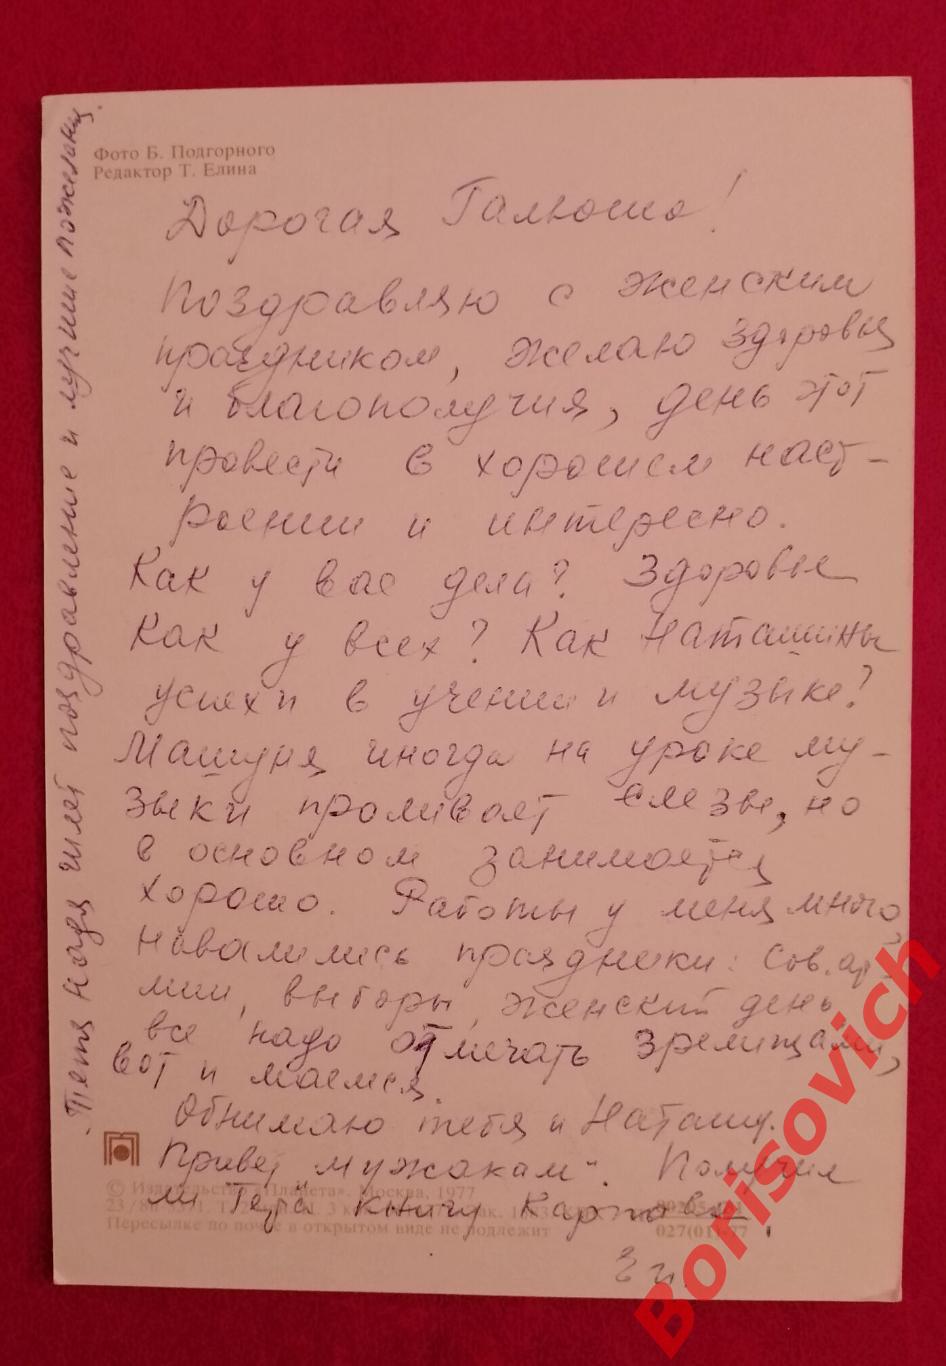 Фото Б. Подгорного
Редактор Т. Елина
Дорогая Галюша!
Поздравляю с женским
праздником, желаю здоровья
и благополучия, день этот
провести в хорошем наст-
роении и интересно.
Как у вас дела? Здоровье
как у всех? Как Наташины
успехи в учении и музыке?
Машуня иногда на уроке му-
зыки проливает слезы, но
в основном занимается
хорошо. Работы у меня много,
навалились праздники: Сов. ар-
мии, выборы, женский день,
все надо отмечать зрелищами,
вот и маемся.
Обнимаю тебя и Наташу.
Привет мужикам. Получил
ли Гера книгу Карпова.
Тетя Надя шлет поздравление и лучшие пожелания.
© Издательство «Планета». Москва, 1977
Пересылке по почте в открытом виде не подлежит
027(01)-77
Borisovich